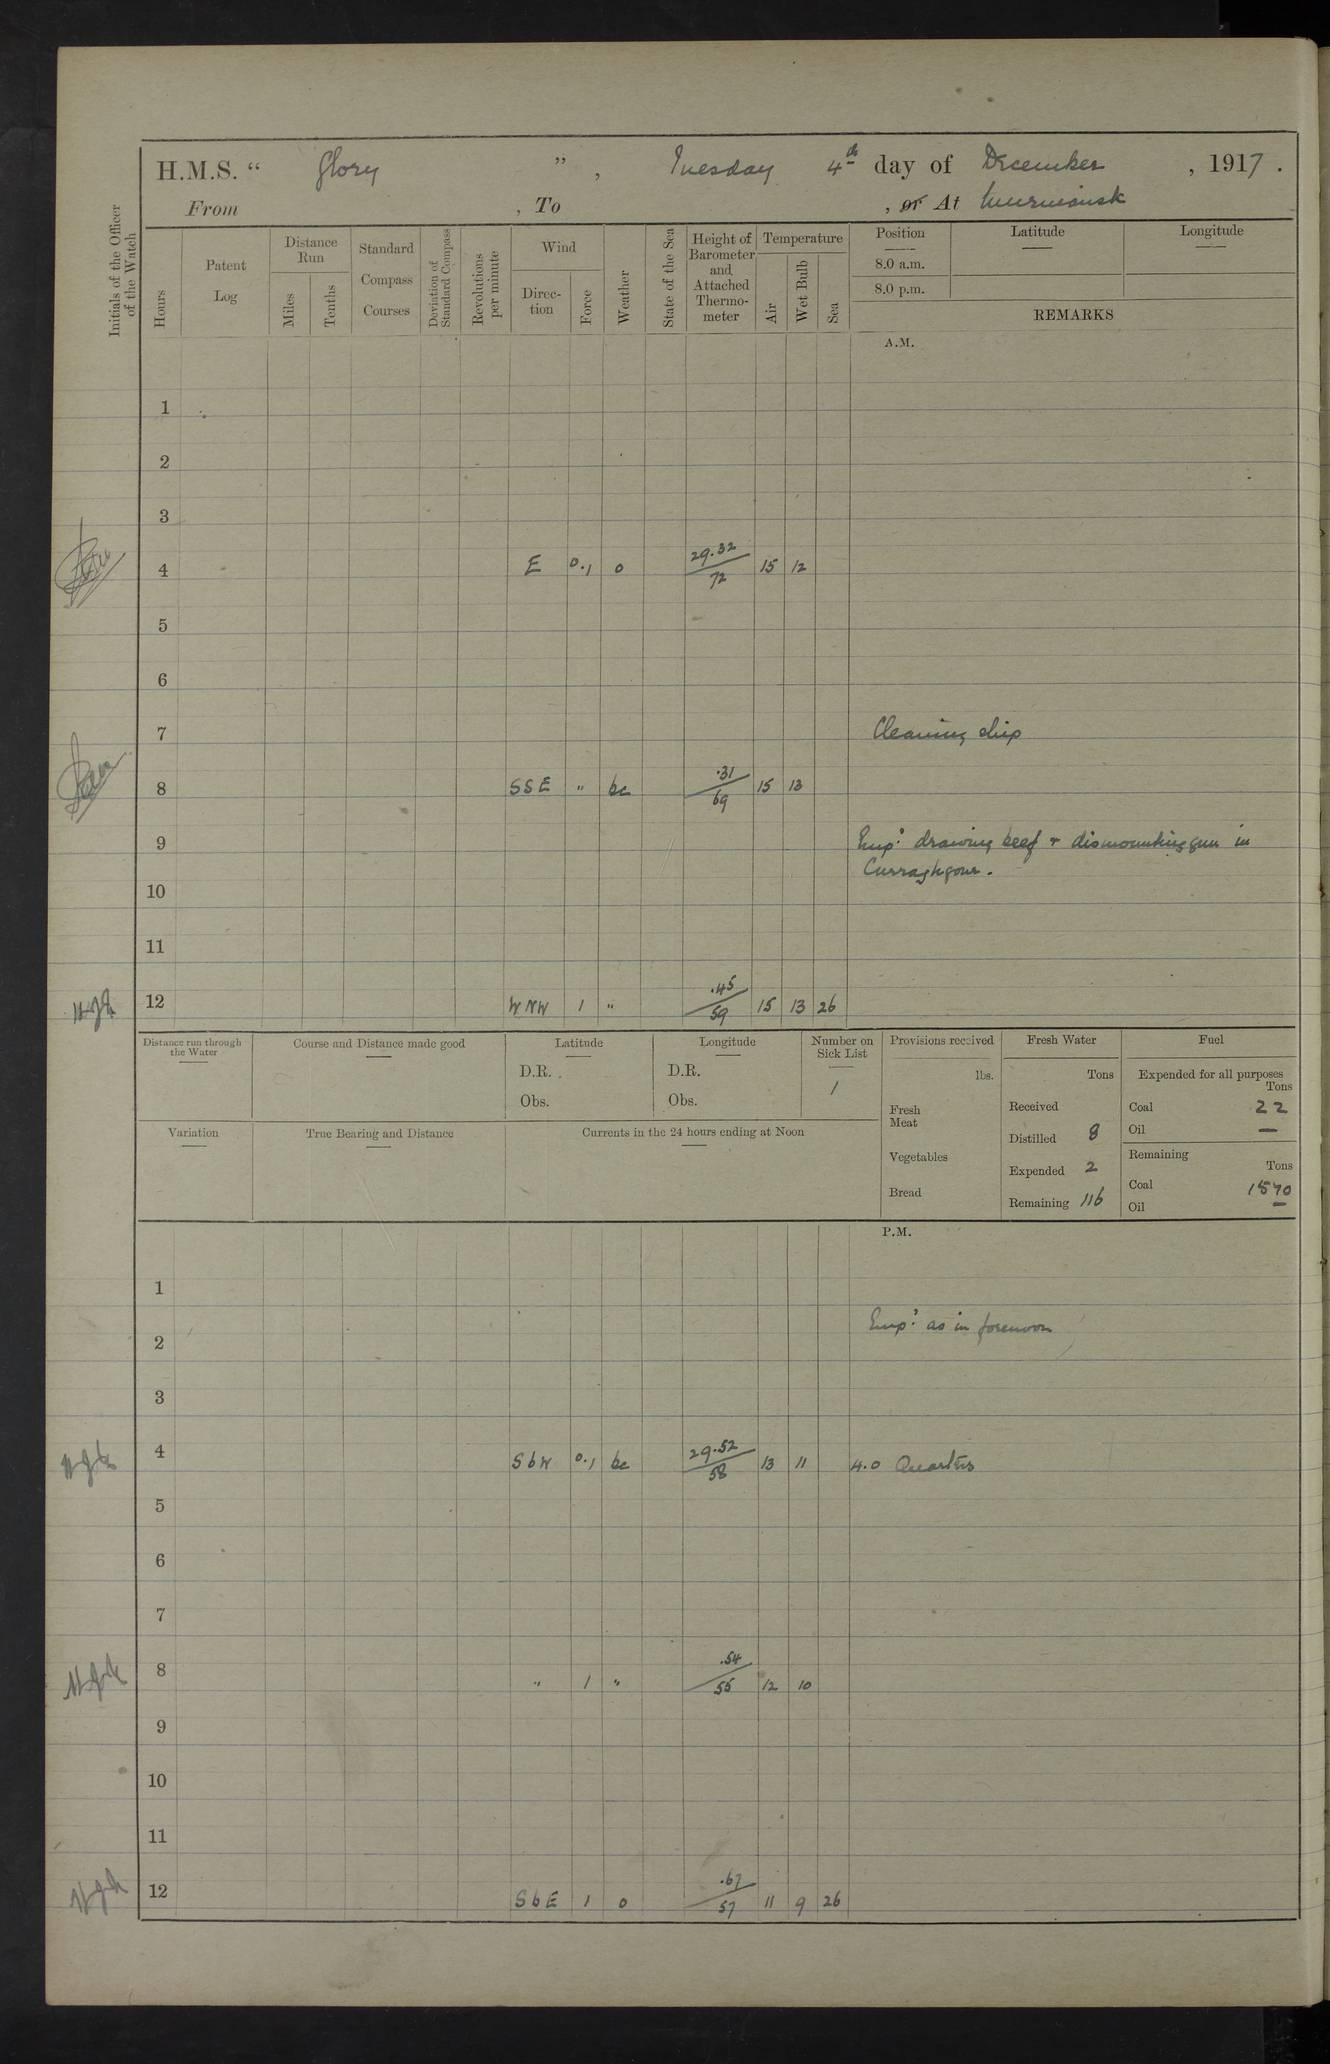 H.M.S. “ Glory ” , Tuesday 4th day of December , 1917 .
From , To , or At Murmansk
Initials of the Officer of the Watch
Hours
Patent Log
Distance Run
Miles
Tenths
Standard Compass Courses
Deviation of Standard Compass
Revolutions per minute
Wind
Direc-tion
Force
Weather
State of the Sea
Height of Barometer and Attached Thermo-meter
Temperature
Air
Wet Bulb
Sea
Position
8.0 a.m.
8.0 p.m.
Latitude
Longitude
REMARKS
A.M.
1
2
3
4 E 0.1 o 29.32/72 15 12
5
6
7 Cleaning ship
8 SSE " bc .31/69 15 13
9 Emp: drawing beef & dismounting gun in
Curraghgour.
10
11
12 WNW 1 " .45/59 15 13 26
Distance run through the Water
Course and Distance made good
Latitude
D.R.
Obs.
Longitude
D.R.
Obs.
Number on Sick List
1
Variation
True Bearing and Distance
Currents in the 24 hours ending at Noon
Provisions received
lbs.
Fresh Meat
Vegetables
Bread
Fresh Water
Tons
Received
Distilled 8
Expended 2
Remaining 116
Fuel
Expended for all purposes
Tons
Coal 22
Oil —
Remaining
Tons
Coal 1570
Oil —
P.M.
1
Emp: as in forenoon
2
3
4 SbW 0.1 bc 29.52/58 13 11 4.0 Quarters
5
6
7
8 " 1 " .54/55 12 10
9
10
11
12 SbE 1 o .67/57 11 9 26